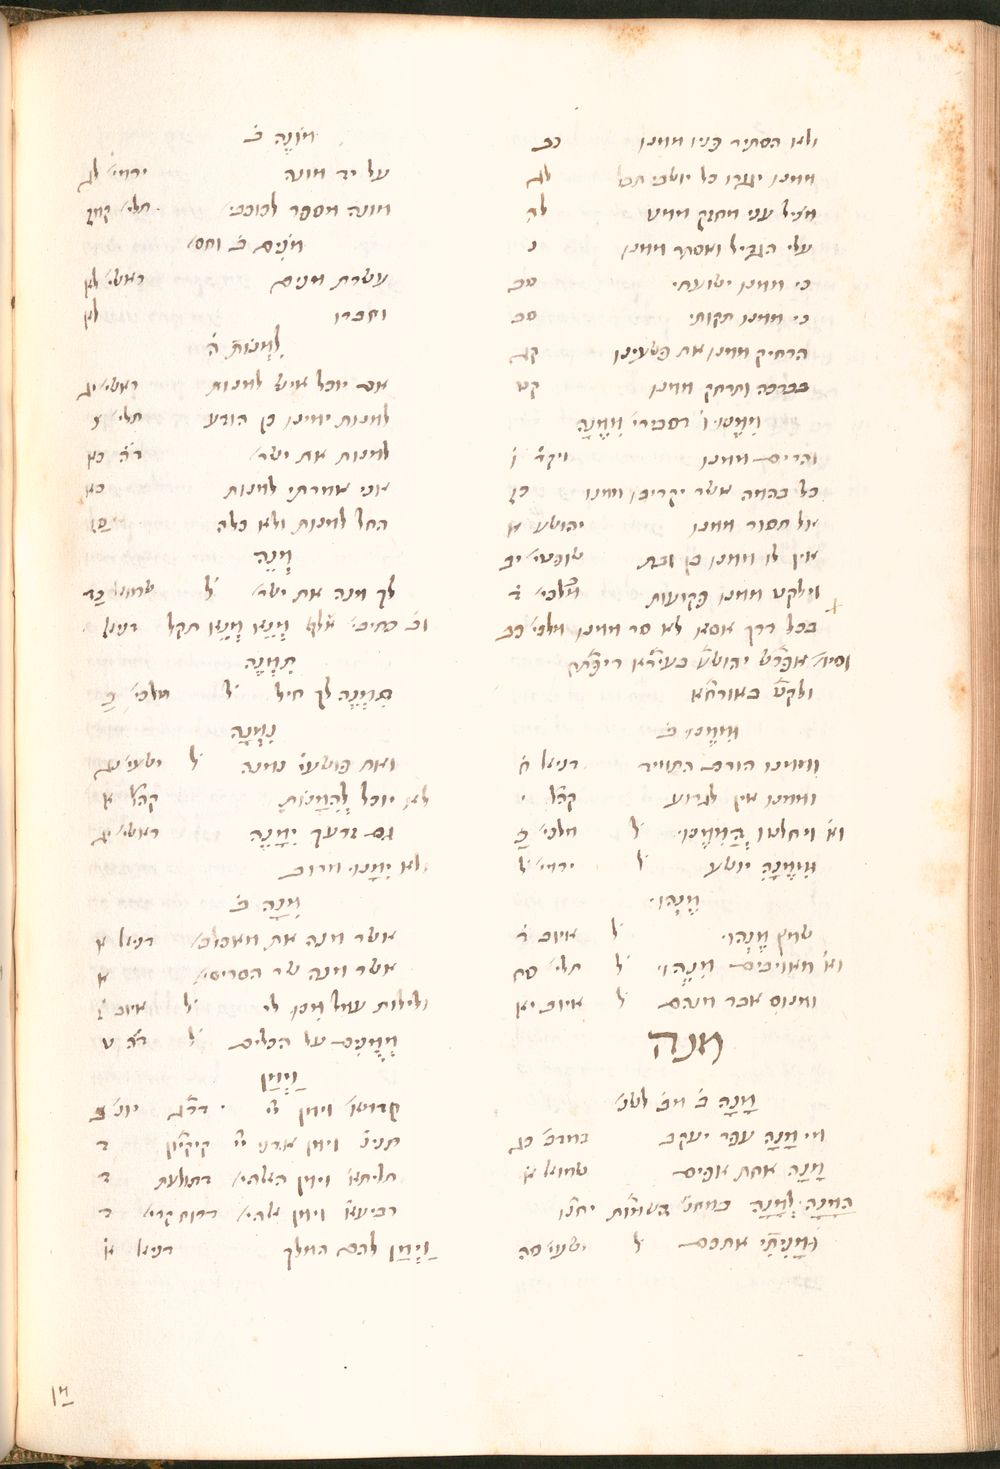 ולא הסתיר פניו ממנו כב
ממנו יגורו כל יושבי תבל לג
מציל עני מחזק ממנו לה
עלי הגדיל ואסתר ממנו נ
כי ממנו ישועתי סב
כי ממנו תקותי סב
הרחיק ממנו את פשעינו קג
בברכה ותרחק ממנו קט
מִמֶּנּוּ ו֗ דסבירי מִמֶּנָּה
והרים ממנו ויקר֗ ו֗
כל בהמה אשר יקריבו ממנו כז
אל תסור ממנו יהושע א
אין לו ממנו בן ובת שופטי׳ יא
וילקט ממנו פקועות מלכי׳ ד֗
בכל דרך אסא לא סר ממנו מלכי׳ כב
ולקט באורח֗א
מִמֶּנּוּ ב֗
וממנו הורם התמיד דניאל ח֗
וממנו אין לגרוע קהל֗ ג
וא֗ ויחלטו הֲמִמֶּנּוּ ל֗ מלכי׳ כ֗
מִמֶּנָּה יושע ל֗ ירמי׳ ל֗
מֶנְהוּ
שמץ מֶנְהוּ ל֗ איוב ד֗
וא֗ מאויבים מִנֵּהוּ ל֗ תלי׳ סח
ומנוס אבד מנהם ל֗ איוב יא
מנה
מָנָה ב֗ מב֗ לשנ׳
מי מָנָה עפר יעקב במדב֗ כג
מָנָה אחת אפים שמואל א֗
וּמָנִיתִי אתכם ל֗ ישעי׳ סה
מוֹנֶה ב֗
על יד מונה ירמי׳ לג
מונה מספר לכוכבי׳ תלי׳ קמז
מֹנִים ב֗ וחס׳
עשרת מנים ראשי׳ לא
וחברו לא
לִמְנוֹת ה֗
אם יוכל איש למנות ראשי׳ יג
למנות ימינו כן הודע תלי׳ צ
למנות את ישר׳ ד֗ה֗ כא
אני אמרתי למנות כא
החל למנות ולא כלה כז
מְנֵה
לך מנה את ישר׳ ל֗ שמואל כד
וב֗ כתיבי׳ אלף מְנֵא מְנֵא תקל דניאל
תִמְנֶה
תִּמְנֶה לך חיל ל֗ מלכי׳ כ֗
נִמְנָה
ואת פושעי׳ נמנה ל֗ ישעי׳ נג
לא יוכל לְהִמָּנוֹת קהל֗ א
גם זרעך יִמָּנֶה ראשי׳ יג
ולא יִמָּנוּ מרוב
מִנָּה ב֗
אשר מנה את מאכלכ׳ דניאל א
אשר מנה שר הסריסי׳ א
ולילות עמל מִנּוּ לי ל֗ איוב ז֗
מְמֻנִּים על הכלים ל֗ ד֗ה֗ ט
וַיְמַן
קדמא׳ וימן יי׳ דד֗ג יונ׳ ב
תניי׳ וימן אדני יי׳ קיקיון ד
תלית׳ וימן האלהי׳ דתולעת ד
רביעא׳ וימן אלהי׳ דרוח קדי׳ ד
וַיְמַן להם המלך דניאל א֗
מן